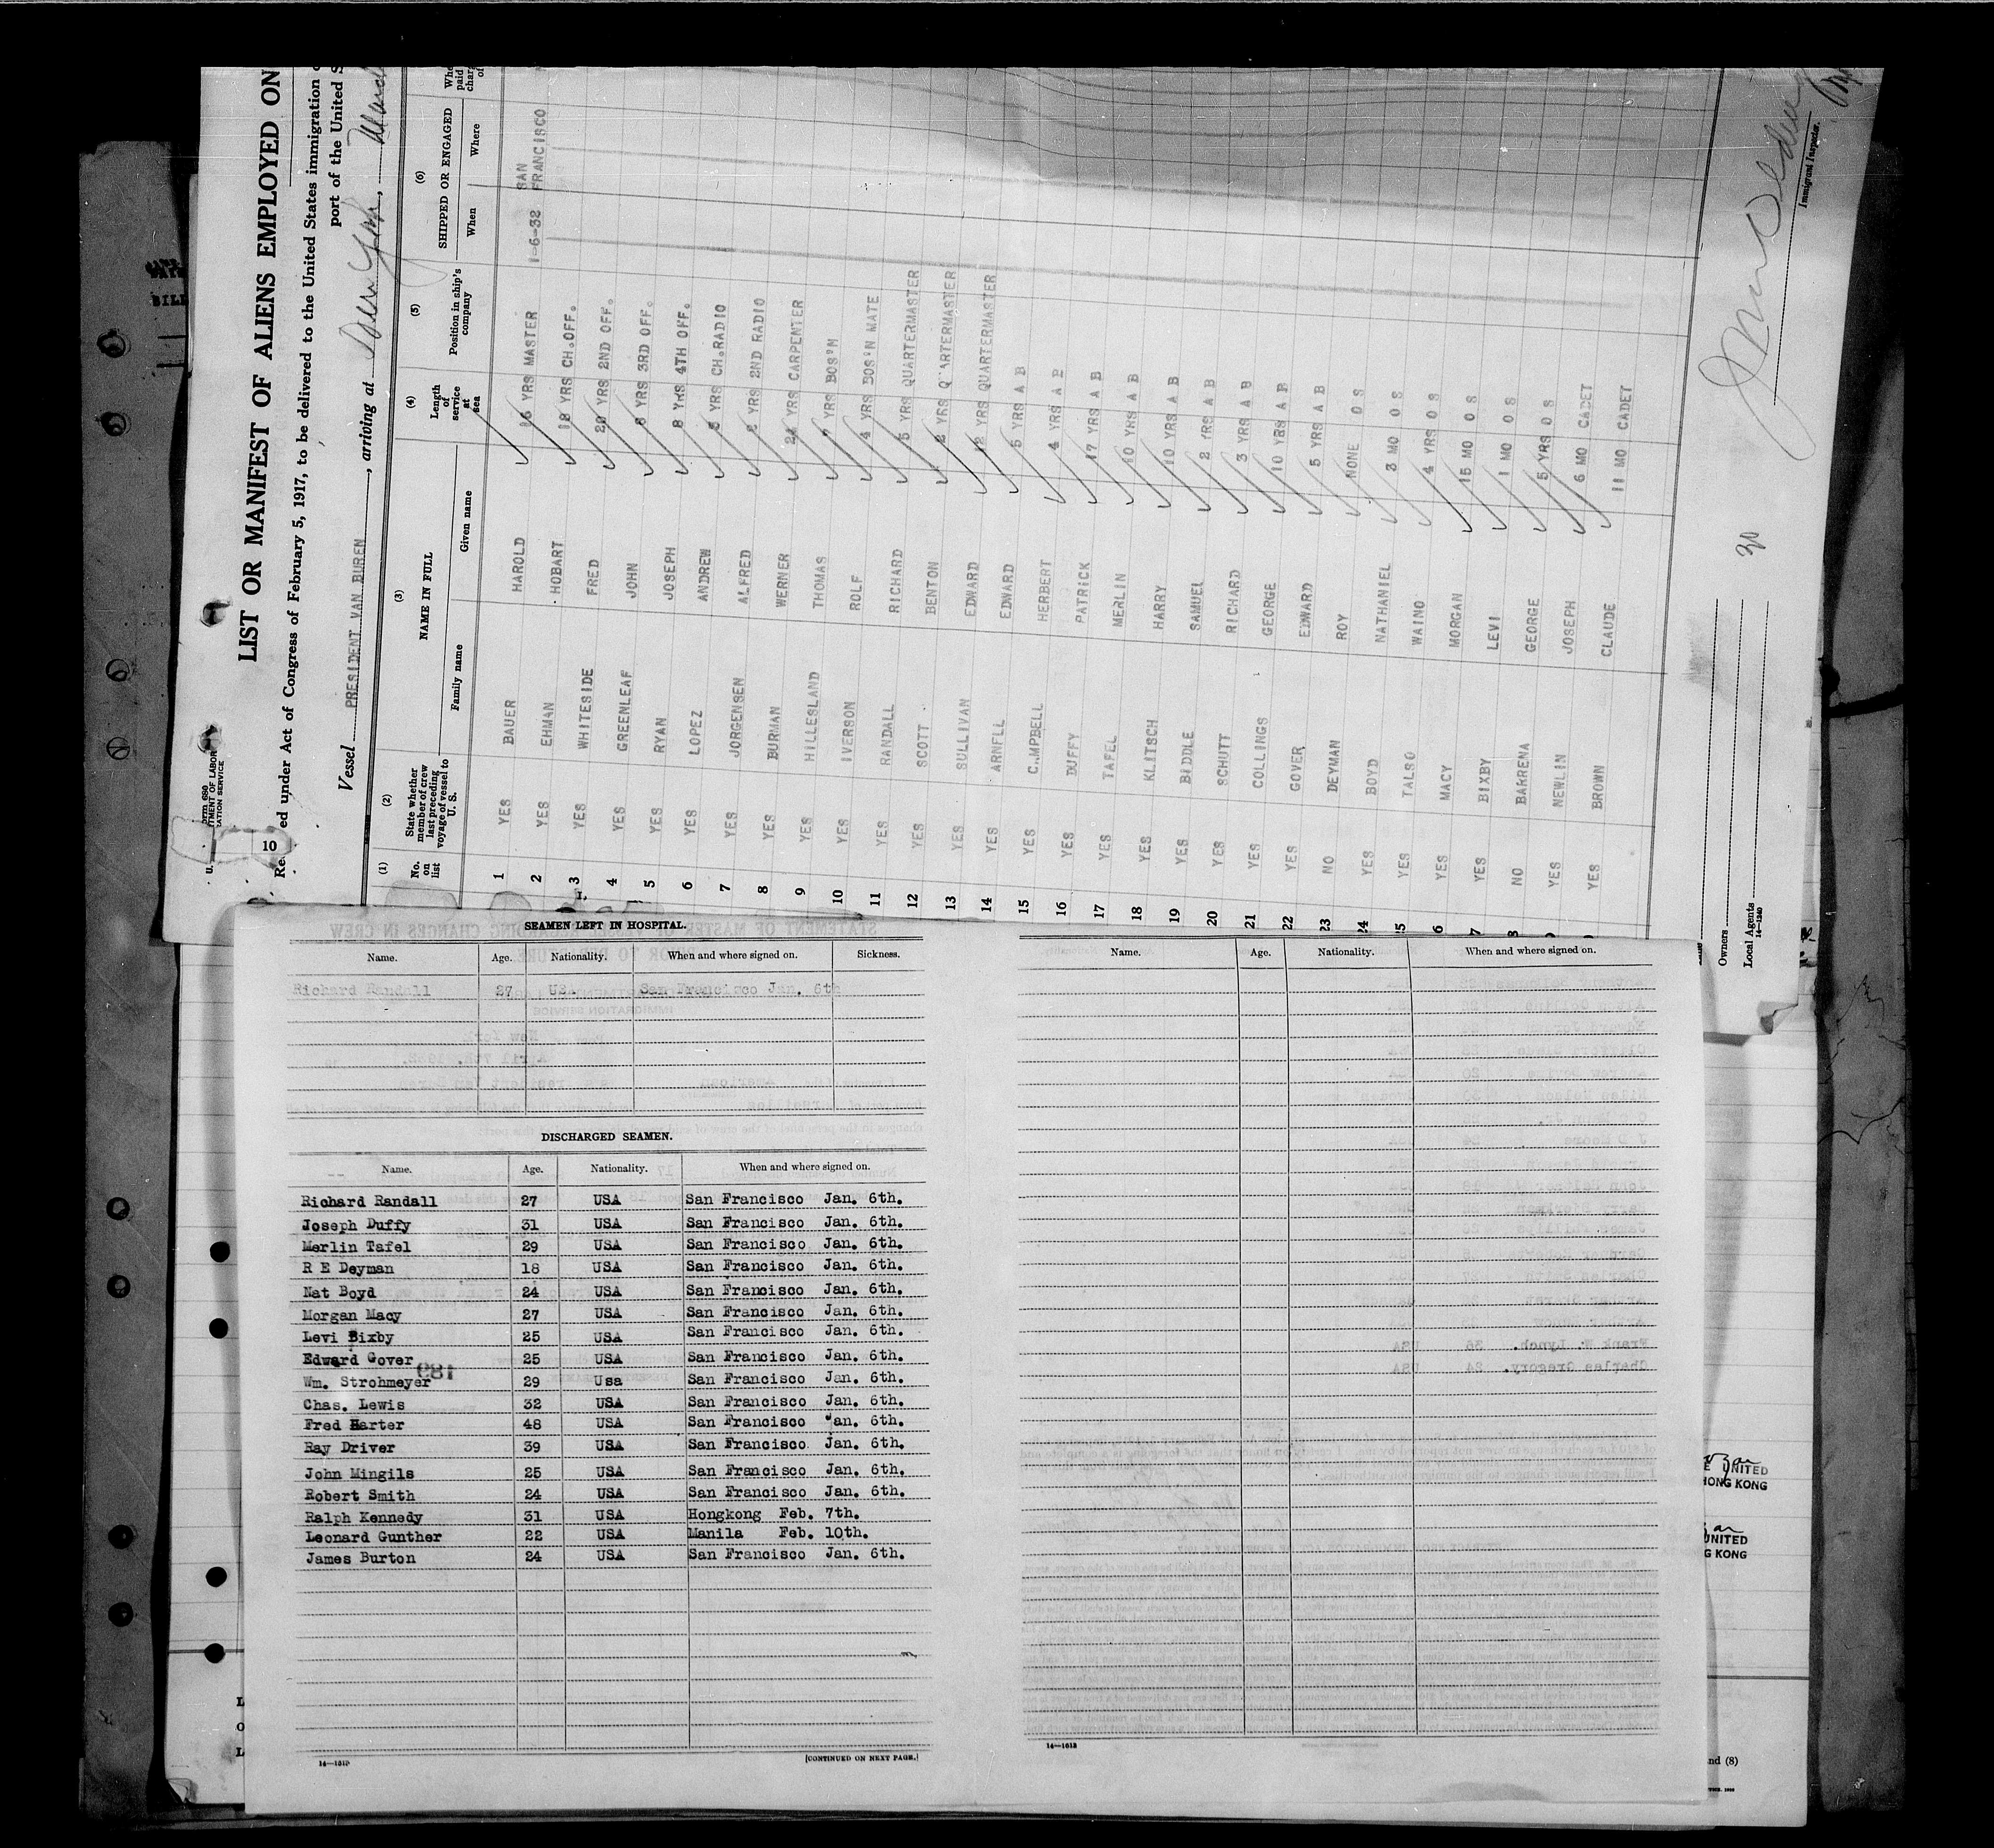 U.
orm 680
TMENT OF LABOR
RATION SERVICE
10
LIST OR MANIFEST OF ALIENS EMPLOYED ON
Re ed under Act of Congress of February 5, 1917, to be delivered to the United States immigration
port of the United S
Vessel PRESIDENT VAN BUREN, arriving at New York,
(1) (2) (3) (4) (5) (6)
No. on list State whether member of crew last preceding voyage of vessel to U. S. NAME IN FULL Family name Given name Length of service at sea Position in ship's company SHIPPED OR ENGAGED When Where
1 YES BAUER HAROLD 16 YRS MASTER 1-6-32 SAN FRANCISCO
2 YES EHMAN HOBART 18 YRS CH.OFF.
3 YES WHITESIDE FRED 20 YRS 2ND OFF.
4 YES GREENLEAF JOHN 6 YRS 3RD OFF.
5 YES RYAN JOSEPH 8 YRS 4TH OFF.
6 YES LOPEZ ANDREW YRS CH.RADIO
7 YES JORGENSEN ALFRED YRS 2ND RADIO
8 YES BURMAN WERNER YRS CARPENTER
9 YES HILLESLAND THOMAS YRS BOS'N
10 YES IVERSON ROLF 4 YRS BOS'N MATE
11 YES RANDALL RICHARD 5 YRS QUARTERMASTER
12 YES SCOTT BENTON YRS Q ARTERMASTER
13 YES SULLIVAN EDWARD 12 YRS QUARTERMASTER
14 YES ARNELL EDWARD 5 YRS A B
15 YES C.MPBELL HERBERT 4 YRS A B
16 YES DUFFY PATRICK 17 YRS A B
17 YES TAFEL MERLIN 10 YRS A B
18 YES KLITSCH HARRY 10 YRS A B
19 YES BIDDLE SAMUEL 2 YRS A B
20 YES SCHUTT RICHARD 3 YRS A B
21 YES COLLINGS GEORGE 10 YRS A B
22 YES GOVER EDWARD 5 YRS A B
23 NO DEYMAN ROY NONE O S
24 YES BOYD NATHANIEL 3 MO O S
25 YES TALSO WAINO 4 YRS O S
6 YES MACY MORGAN 15 MO O S
7 YES BIXBY LEVI 1 MO O S
8 NO BARRENA GEORGE 5 YRS O S
YES NEWLIN JOSEPH 6 MO CADET
YES BROWN CLAUDE 11 MO CADET
Owners
Local Agents
14—1240
30
Immigrant Inspector.
SEAMEN LEFT IN HOSPITAL.
Name. Age. Nationality. When and where signed on. Sickness.
Richard Randall 27 US. San Francisco Jan. 6th
DISCHARGED SEAMEN.
Name. Age. Nationality. When and where signed on.
Richard Randall 27 USA San Francisco Jan. 6th.
Joseph Duffy 31 USA San Francisco Jan. 6th.
Merlin Tafel 29 USA San Francisco Jan. 6th.
R E Deyman 18 USA San Francisco Jan. 6th.
Nat Boyd 24 USA San Francisco Jan. 6th.
Morgan Macy 27 USA San Francisco Jan. 6th.
Levi Bixby 25 USA San Francisco Jan. 6th.
Edward Gover 25 USA San Francisco Jan. 6th.
Wm. Strohmeyer 29 Usa San Francisco Jan. 6th.
Chas. Lewis 32 USA San Francisco Jan. 6th.
Fred Harter 48 USA San Francisco Jan. 6th.
Ray Driver 39 USA San Francisco Jan. 6th.
John Mingils 25 USA San Francisco Jan. 6th.
Robert Smith 24 USA San Francisco Jan. 6th.
Ralph Kennedy 31 USA Hongkong Feb. 7th.
Leonard Gunther 22 USA Manila Feb. 10th.
James Burton 24 USA San Francisco Jan. 6th.
[CONTINUED ON NEXT PAGE.]
Name. Age. Nationality. When and where signed on.
14—1512
E UNITED
HONG KONG
UNITED
G KONG
nd (8)